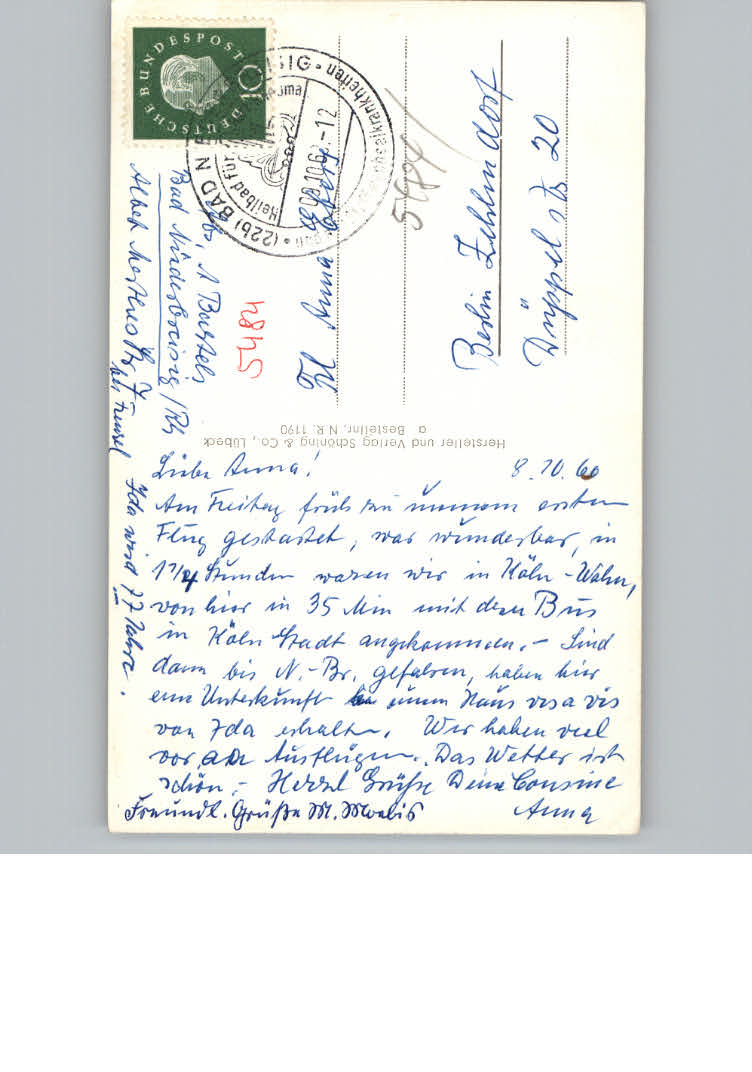 DEUTSCHE BUNDESPOST
10
(22b) BAD
Heilbad für
08.10.60-12
Abs. A Bartels
Bad Niederbreisig /Rh
Albert Mertens Str. 7
5484
Frl Anna
Berlin Zehlendorf
Düppelstr 20
Hersteller und Verlag Schöning & Co., Lübeck
a Bestellnr. N.R. 1190
Liebe Anna! 8.10.60
Am Freitag früh zu unserem ersten
Flug gestartet, war wunderbar, in
1 1/4 Stunden waren wir in Köln-Wahn,
von hier in 35 Min mit dem Bus
in Köln Stadt angekommen. - Sind
dann bis N.-Br. gefahren, haben hier
eine Unterkunft in einem Haus vis a vis
von Ida erhalten. Wir haben viel
vor, an Ausflügen. Das Wetter ist
schön. - Herzl Grüße Deine Cousine
Anna
Freundl. Grüße M.
Ida wird 77 Jahre.